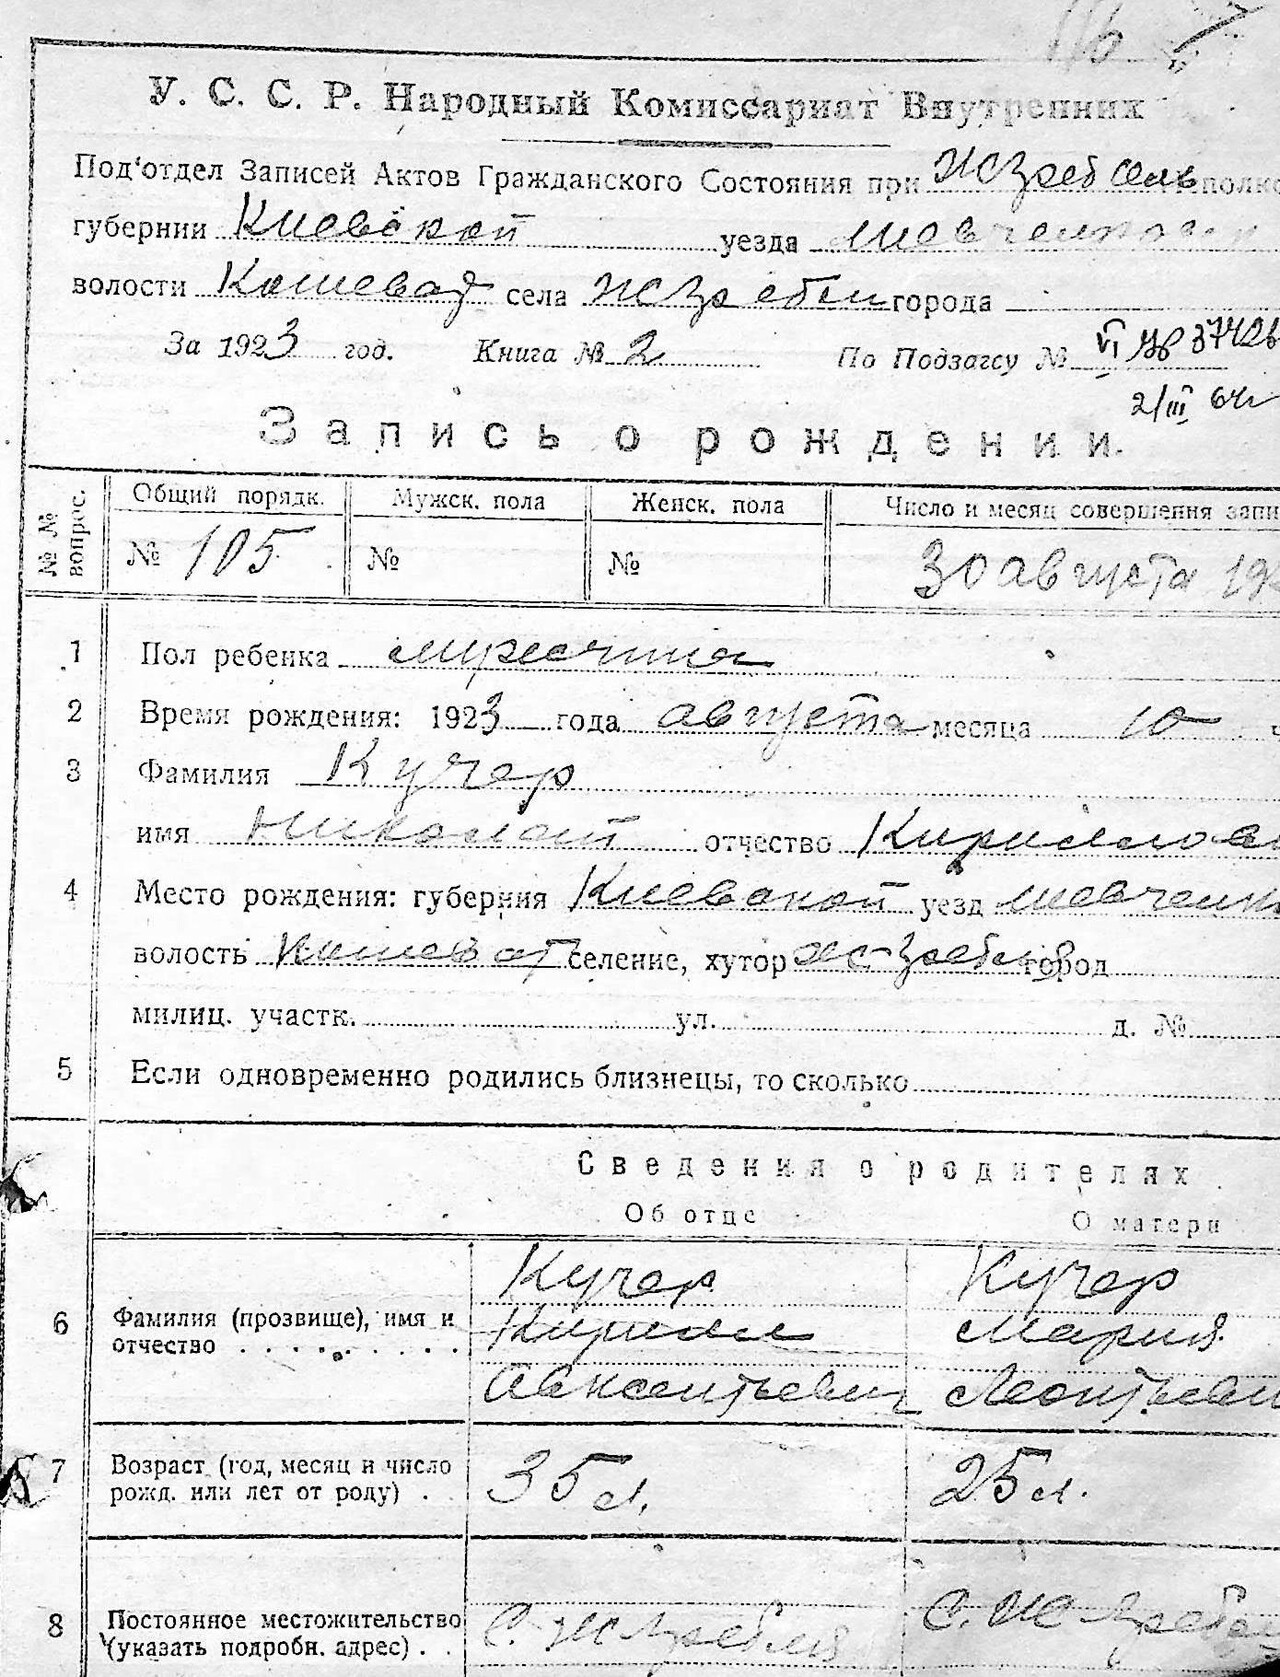 116
У. С. С. Р. Народный Комиссариат Внутренних
Под'отдел Записей Актов Гражданского Состояния при
губернии Киевской уезда
волости села города
За 1923 год. Книга № 2 По Подзагсу №
2/III 64г
Запись о рождении.
№ № вопрос. Общий порядк. Мужск. пола Женск. пола Число и месяц совершения запи
№ 105 № № 30 августа 19
1 Пол ребенка мужчина
2 Время рождения: 1923 года августа месяца 10
3 Фамилия Кучер
имя Николай отчество Кириллов
4 Место рождения: губерния Киевской уезд Шевченк
волость селение, хутор город
милиц. участк. ул. д. №
5 Если одновременно родились близнецы, то сколько
Сведения о родителях
Об отце О матери
Кучер Кучер
6 Фамилия (прозвище), имя и Кирилл Мария
отчество Авксентьевич Леонтьевн
7 Возраст (год, месяц и число 35 л. 25 л.
рожд. или лет от роду)
8 Постоянное местожительство С. С.
(указать подробн. адрес)